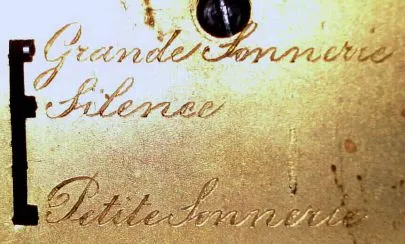 Grande Sonnerie
Silence
Petite Sonnerie